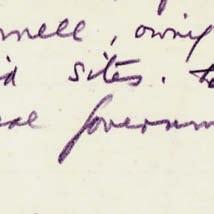 nell, owing
id sites. to
al Governm